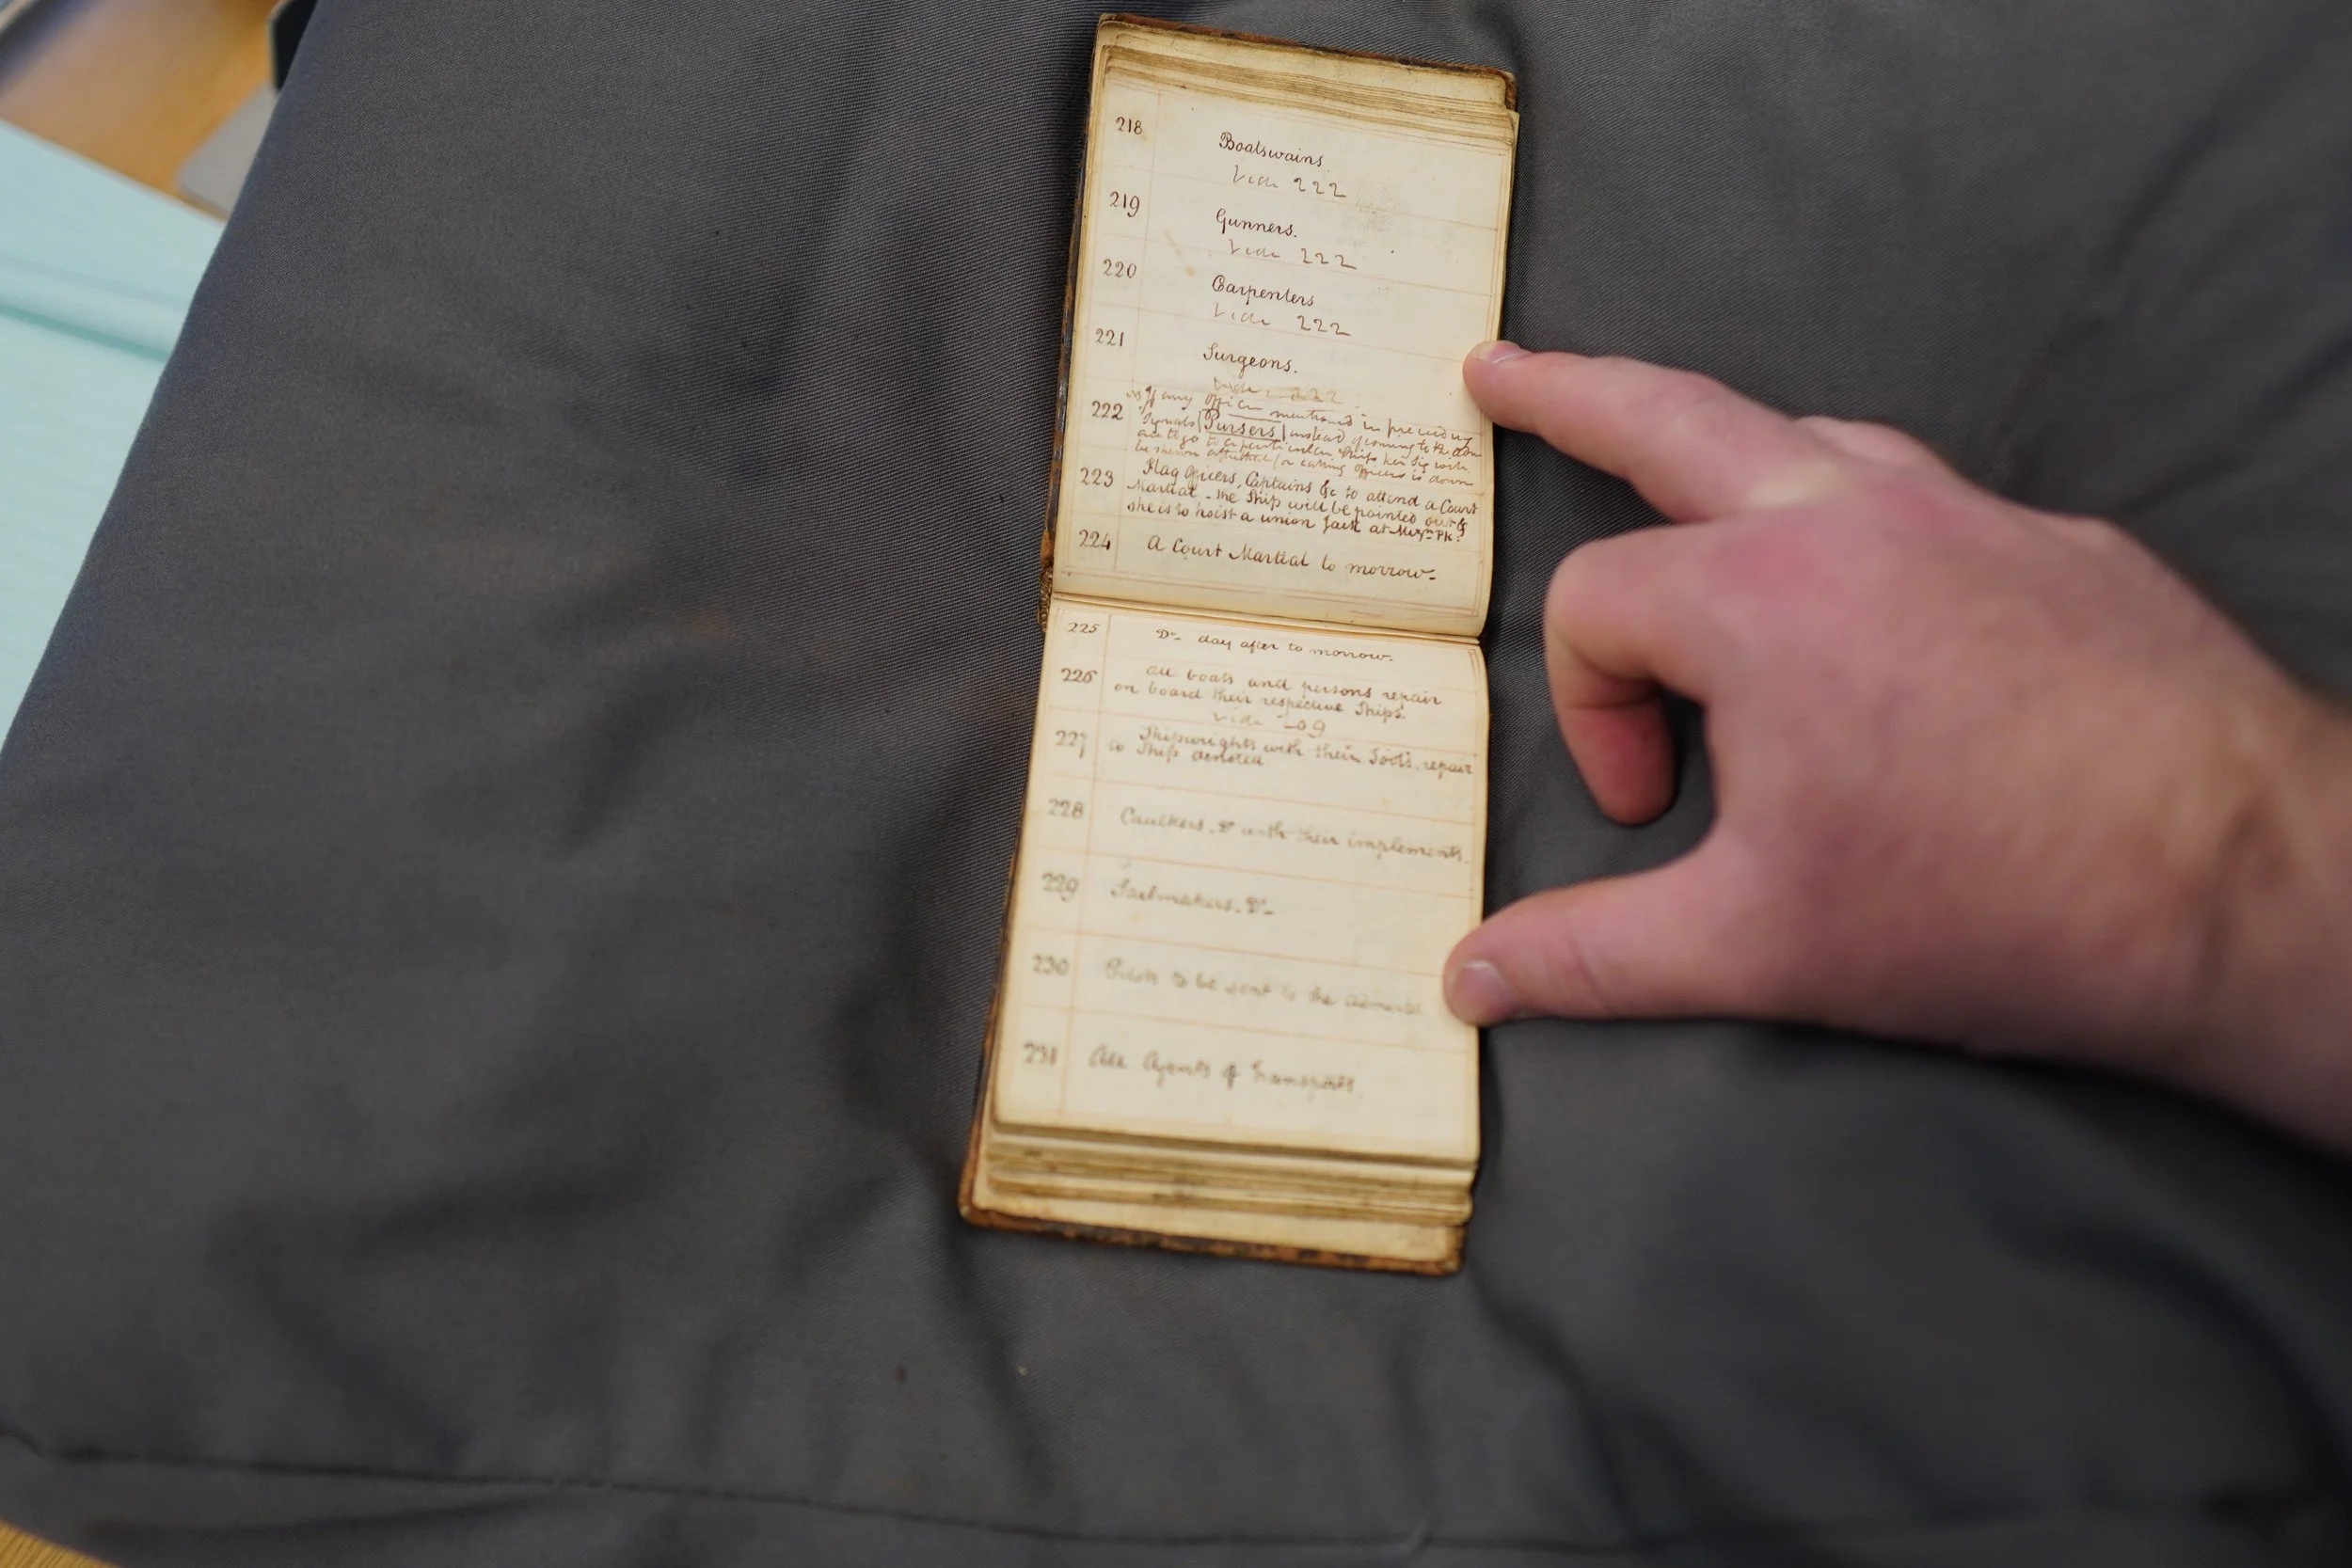 218 Boatswains
Vide 222
219 Gunners.
Vide 222
220 Carpenters
Vide 222
221 Surgeons.
Vide 222
If any officer mentioned in preceding
222 Signals Pursers instead of coming to the
are to go to a particular Ship her Sig will
be shewn after that for calling officers is down
Flag officers, Captains &c to attend a Court
223 Martial - the Ship will be pointed out &
she is to hoist a union Jack at Mizn PK.
224 A Court Martial to morrow-
225 Do- day after to morrow.
226 All boats and persons repair
on board their respective Ships.
Vide
227 Shipwrights with their Tools, repair
to Ship denoted
228 Caulkers. Do with their implements.
229 Sailmakers. Do-
230 to be sent to the Admiral
231 All Agents of Transports.